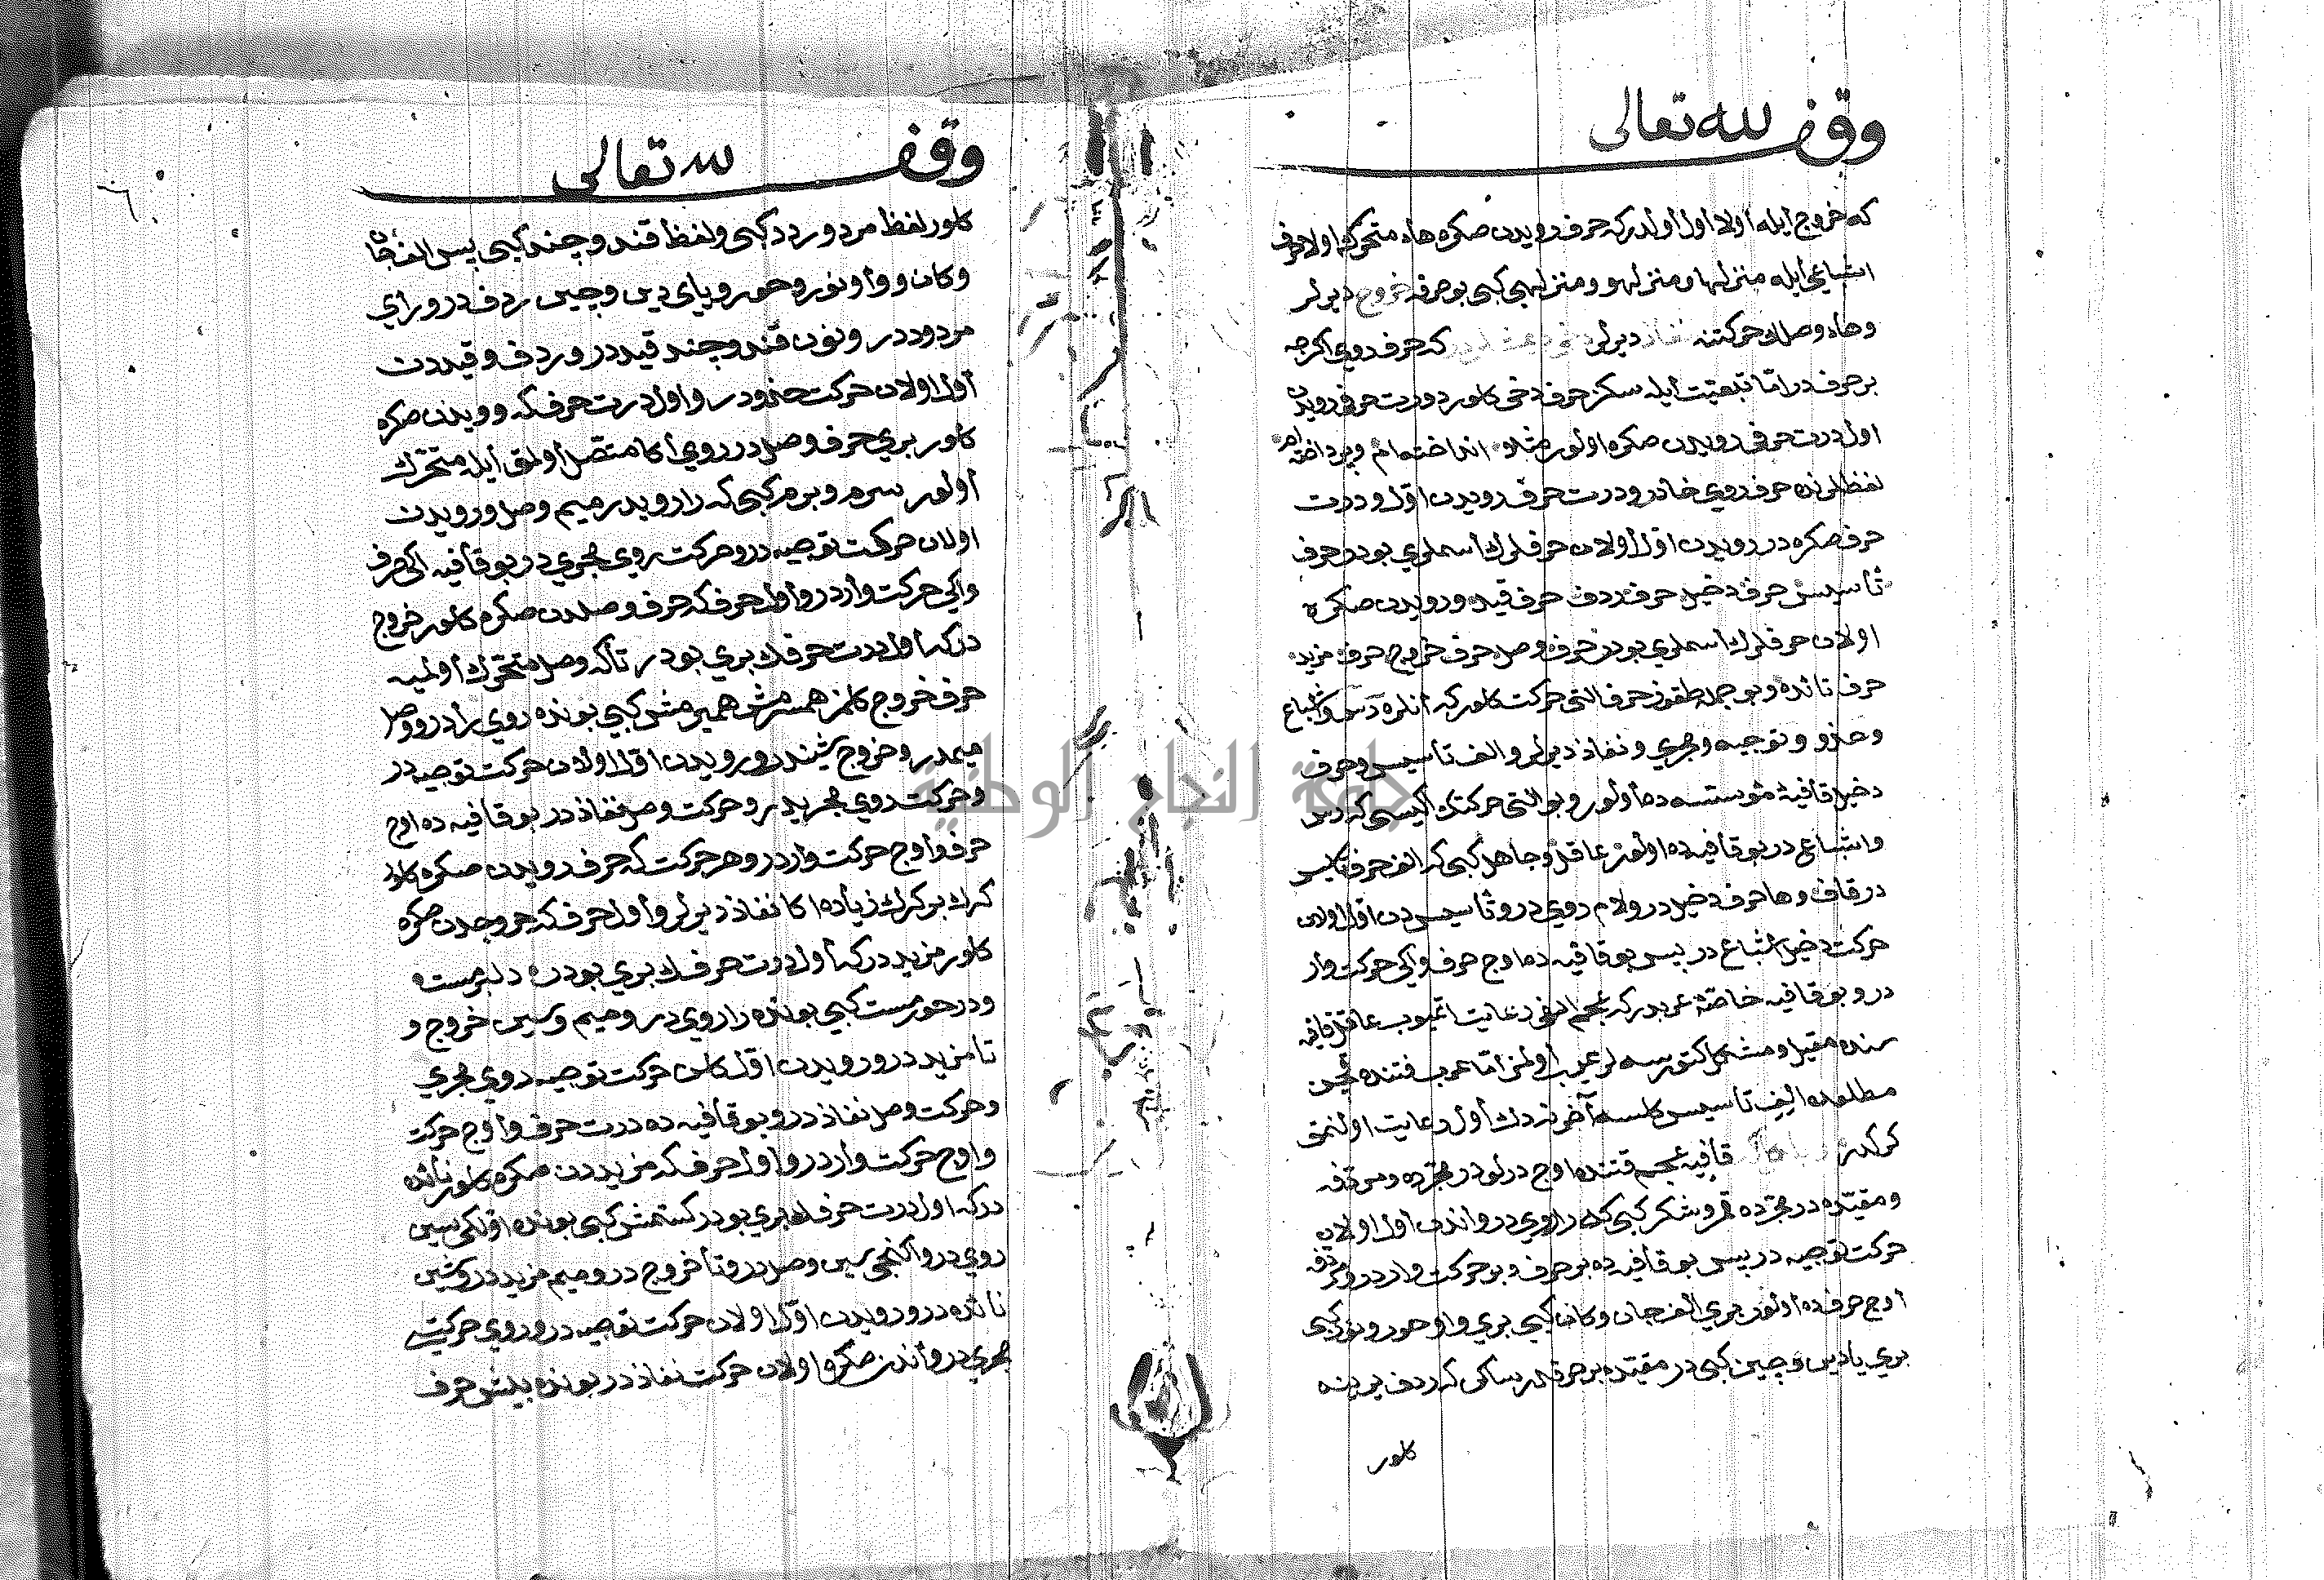 وقف لله تعالى
كه خروج ايله اولا اول اولدركه حرف رويدن صكره هاء متحركه اولا حرف
اشباعي ايله منزلها ومنزلهو ومنزلهي كبي بو حرفه خروج ديرلر
وهاء وصلك حركتنه نفاذ ديرلر كه حرف روي اكرچه
بر حرفدر اما تبعيت ايله سكز حرف دخي كلور دورت حرف رويدن
اول درت حرف رويدن صكره اولور مثلا انداخته ام وپرداخته ام
لفظلرنده حرف روي خادر ودرت حرف رويدن اول ودرت
حرف صكره در رويدن اول اولان حرفلرك اسملري بودر حرف
تأسيس حرف دخيل حرف ردف حرف قيد ورويدن صكره
اولان حرفلرك اسملري بودر حرف وصل حرف خروج حرف مزيد
حرف نائره وبو جمله طقوز حرف التي حركت كلور كه انلره رس واشباع
وحذو وتوجيه ومجري ونفاذ ديرلر والف تأسيس وحرف
دخيل قافيهٔ مؤسسه ده اولور وبو التي حركتك ايكيسي كه رس
واشباع در بو قافيه ده اولور عاقل وجاهل كبي كه الف حرف تأسيس
در قاف وها حرف دخيل در ولام روي در وتأسيس دن اول اولان
حركت دخيل اشباع در پس بو قافيه ده اوج حرف وايكي حركت وار
در وبو قافيه خاصهٔ عربدر كه عجم الفي رعايت اتميوب عاقل قافيه
سنده مقبل ومشكل كتورسه لر عيب اولمز اما عرب فتنده نچون
مطلعده الف تأسيس كلسه آخرنه دك اول رعايت اولنمق
كركدر قافيه عجم فتنده اوج درلودر مجرده ومردفه
ومقيده در مجرده قمر وشكر كبي كه را روي در واندن اول اولان
حركت توجيه در پس بو قافيه ده بر حرف وبر حركت واردر ومردفه
اوج حرفده اولور بري الف جان وكان كبي بري واو حور ونور كبي
بري يا دين وچين كبي در مقيده بر حرفدر ساكن كه ردف يرينه
كلور
وقف لله تعالى
كلور لفظ مرد ودرد كبي ولفظ قند وچند كبي پس الف جان
وكان وواو نور وحور وياي دين وچين ردف در وراي
مرد ودرد ونون قند وچند قيددر وردف وقيددن
اول اولان حركت حذودر واول درت حرفكه رويدن صكره
كلور بري حرف وصل در روي اكا متصل اولمق ايله متحرك
اولور سرم وبرم كبي كه را رويدر ميم وصل ورويدن
اولان حركت توجيه در وحركت روي مجري در بو قافيه ايكي حرف
وايكي حركت واردر واول حرف كه حرف وصلدن صكره كلور خروج
دركه اول درت حرفك بري بودر تاكه وصل متحرك اولميه
حرف خروج كلمز همسرمش همبرمش كبي بونده روي را در ووصل
ميمدر وخروج شيندر ورويدن اول اولان حركت توجيه در
وحركت روي مجريدر وحركت وصل نفاذ در بو قافيه ده اوج
حرف واوج حركت واردر وهر حركت كه حرف رويدن صكره كلور
كرك بر كرك زياده اكا نفاذ ديرلر واول حرف كه خروجدن صكره
كلور مزيد دركه اول درت حرفك بري بودر دلبرمست
ودرحورمست كبي بونده را روي در وميم وسين خروج و
تا مزيد در ورويدن اول كلن حركت توجيه روي مجري
وحركت وصل نفاذ در وبو قافيه ده درت حرف واوج حركت
واوج حركت واردر واول حرف كه مزيددن صكره كلور نائره
دركه اول درت حرفك بري بودر كستمش كبي بونده اولكي سين
روي در وايكنجي سين وصل در وتا خروج در وميم مزيد در وشين
نائره در ورويدن اول اولان حركت توجيه در وروي حركتي
مجري در واندن صكره اولان حركت نفاذ در بونده بش حرف
جامعة النجاح الوطنية